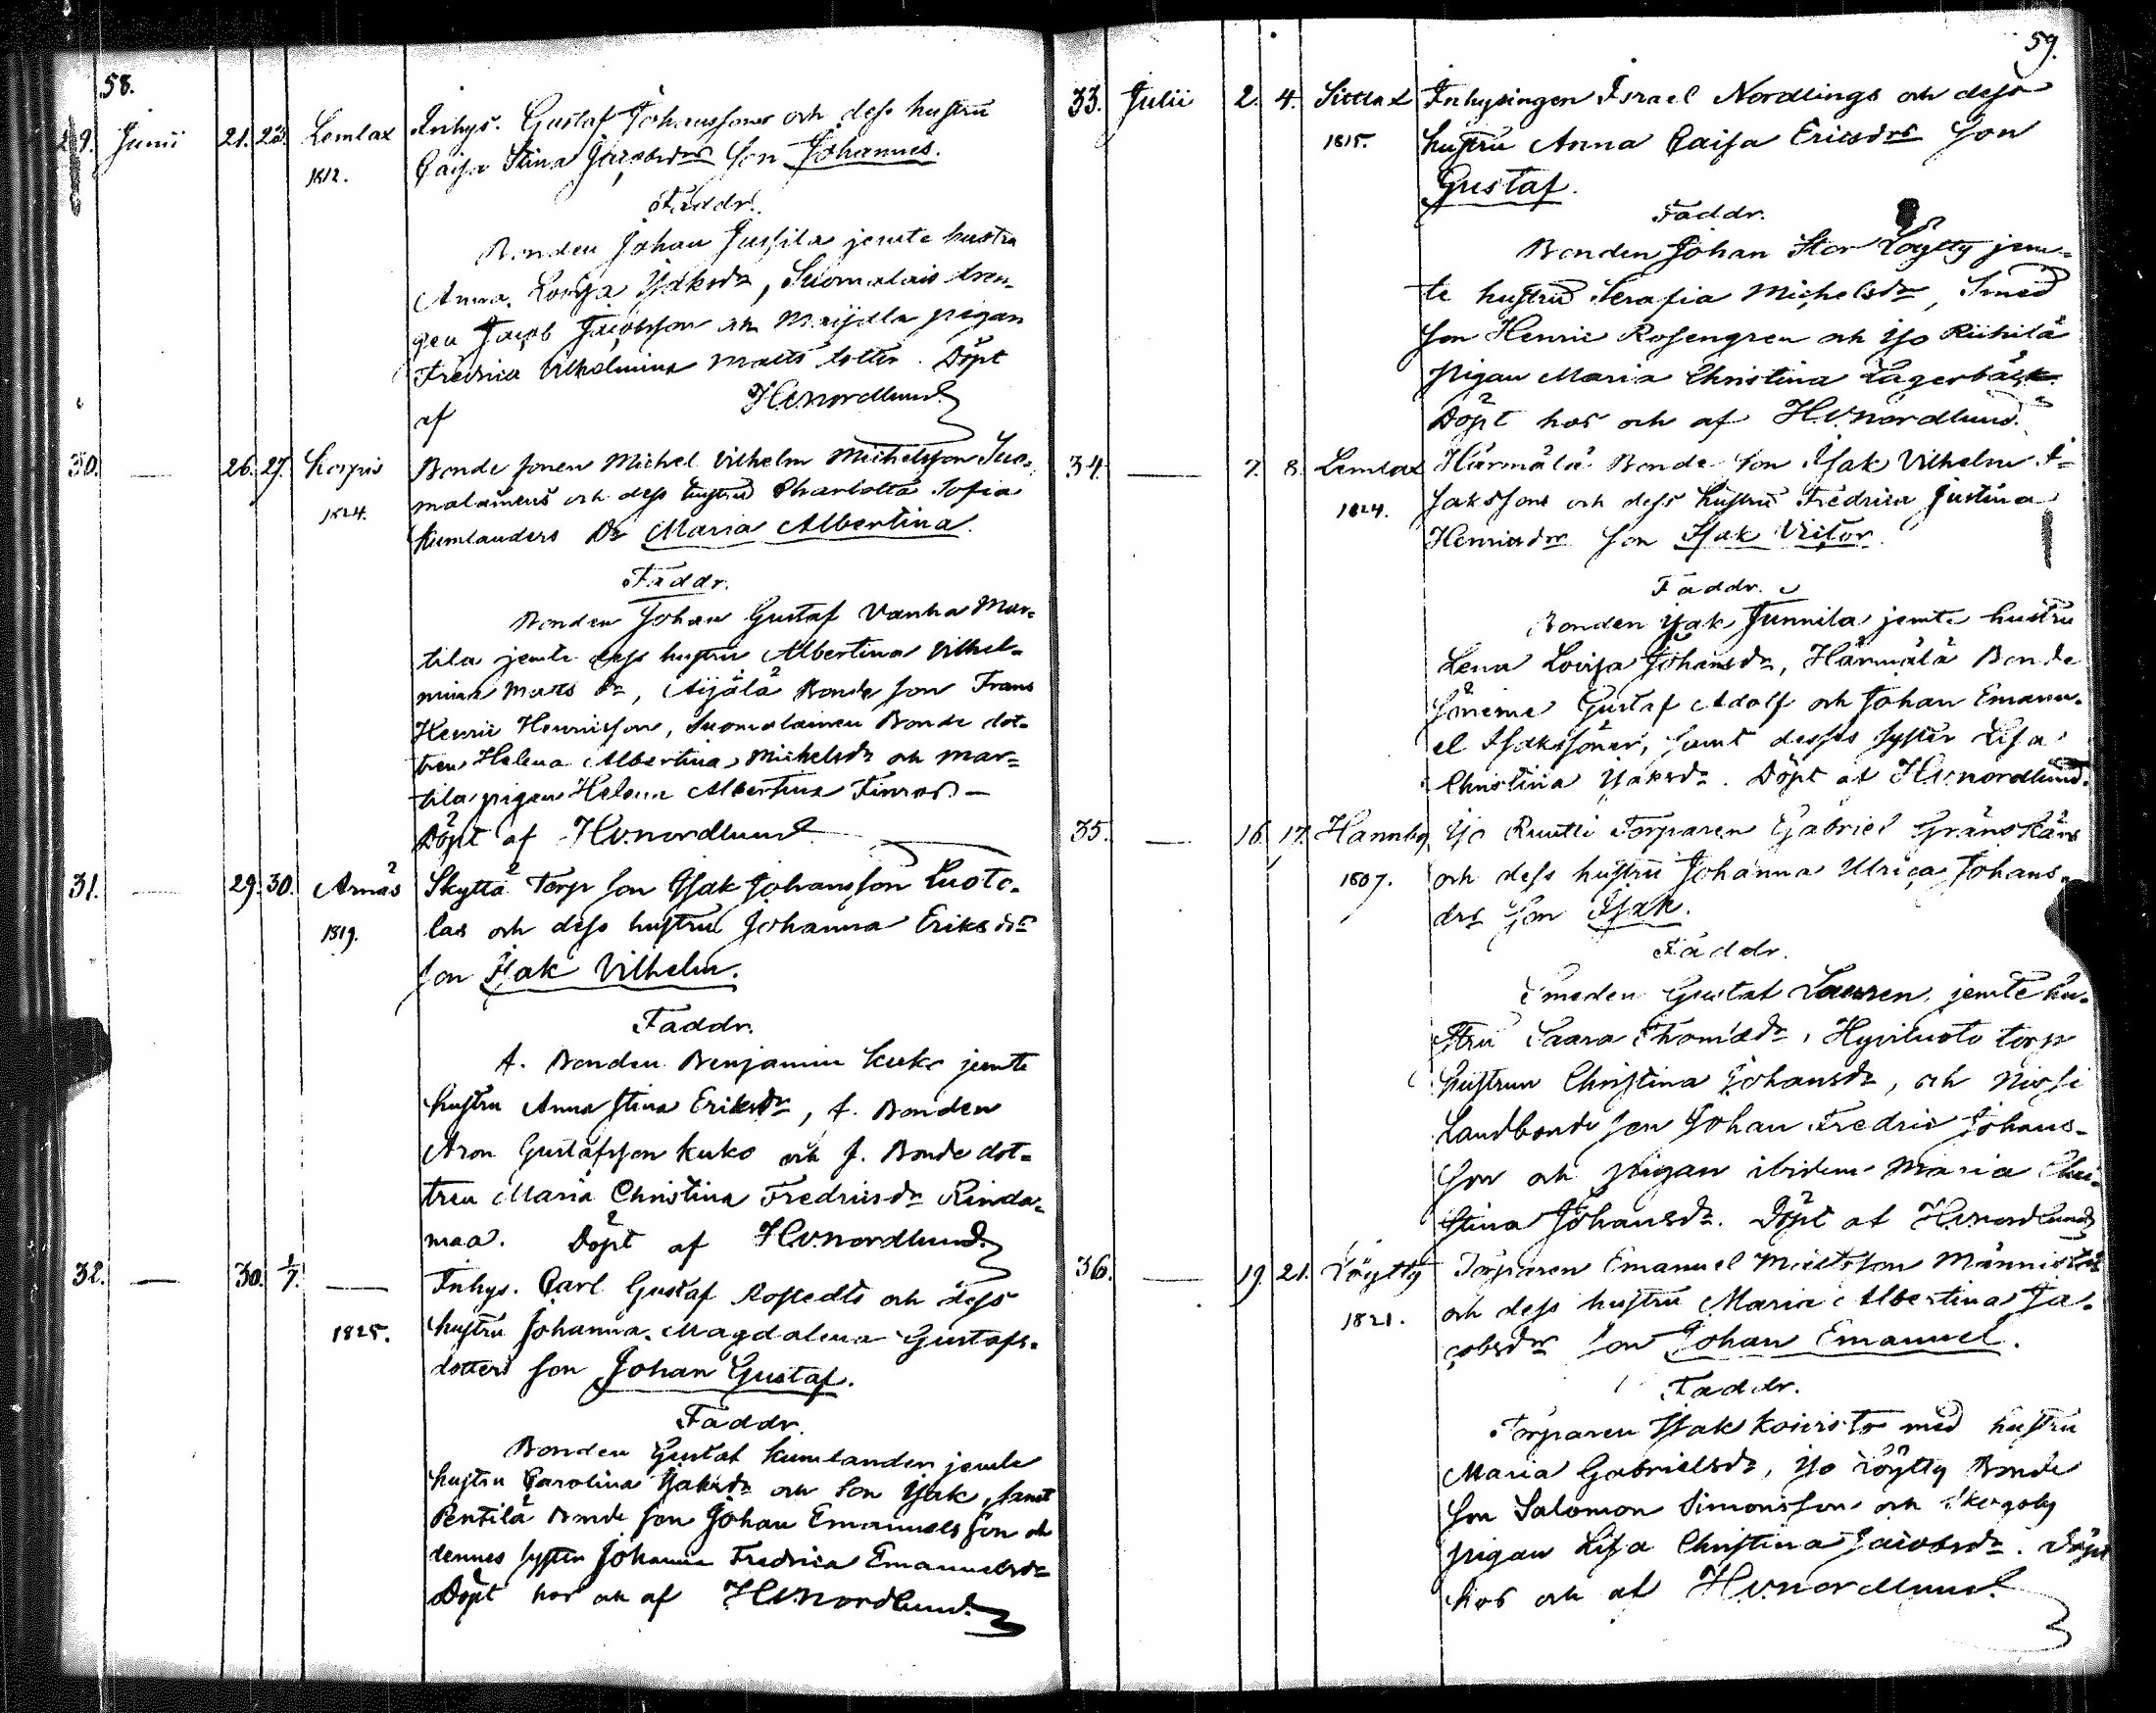 58.
29. Junii 21. 23. Lemlax Inhys. Gustaf Johanssons och dess hustru
1812. Caisa Stina Jacobsdrs Son Johannes.
Faddr.
Bonden Johan Jussila jemte hustru
Anna Lovisa Isaksdr, Suomalais dren-
gen Jacob Jacobsson och Maijala pigan
Fredrica Vilhelmina Matts dotter. Döpt
af H.v.nordlund.
30. — 26. 27. Korpis Bonde sonen Michel Vilhelm Michelsson Suo-
1824. malainens och dess hustru Charlotta Sofia
Kumlanders Dr Maria Albertina.
Faddr.
Bonden Johan Gustaf Vanha Mar-
tila jemte dess hustru Albertina Vilhel-
mina Matts dr, Aijälä Bonde son Frans
Henric Henricsson, Suomalainen Bonde dot-
tren Helena Albertina Michelsdr och Mar-
tila pigan Helena Albertina —
Döpt af H.v.nordlund
31. — 29. 30. Arnäs Skyttä Torp son Isak Johansson Luoto-
1819. las och dess hustru Johanna Eriksdrs
son Isak Vilhelm.
Faddr.
f. Bonden Benjamin Kuko jemte
hustru Anna Stina Eriksdr, f. Bonden
Aron Gustafsson Kuko och f. Bonde dot-
tren Maria Christina Fredricsdr Rinda-
maa. Döpt af H.v.nordlund.
32. — 30. 1/7. — Inhys. Carl Gustaf Rostedts och dess
1825. hustru Johanna Magdalena Gustafs-
dotters son Johan Gustaf.
Faddr.
Bonden Gustaf Kumlander jemte
hustru Carolina Isaksdr och Son Isak, samt
Pentilä Bonde son Johan Emanuelsson och
dennes syster Johanna Fredrica Emanuelsdr
Döpt hos och af H.v.nordlund.
59.
33. Julii 2. 4. Sittlax Inhysingen Israel Nordlings och dess
1815. hustru Anna Caisa Ericsdrs Son
Gustaf.
Faddr.
Bonden Johan Stor Löytty jem-
te hustru Serafia Michelsdr, Smed
son Henric Rosengren och Iso Riihilä
pigan Maria Christina Lagerbäck.
Döpt hos och af H.v.nordlund.
34. — 7. 8. Lemlax Härmälä Bonde son Isak Vilhelm I-
1824. saksons och dess hustru Fredrica Justina
Henricsdrs son Isak Victor.
Faddr.
Bonden Isak Junnila jemte hustru
Lena Lovisa Johansdr, Härmälä Bonde
sönerne Gustaf Adolf och Johan Emanu-
el Isakssöner, samt desses syster Lisa
Christina Isaksdr. Döpt af H.v.nordlund.
35. — 16. 17. Hannby Iso Ruutti Torparen Gabriel Gränskärs
1807. och dess hustru Johanna Ulrica Johans-
drs son Isak.
Faddr.
Smeden Gustaf Lauren, jemte hu-
stru Saara Thomædr, Hyviluoto torp
hustrun Christina Johansdr, och
Landbonde son Johan Fredric Johans-
son och pigan ibidem Maria Chri-
stina Johansdr. Döpt af H.v.nordlund
36. — 19. 21. Löytty Torparen Emanuel Mattsson Männistös
1821. och dess hustru Maria Albertina Ja-
cobsdrs son Johan Emanuel.
Faddr.
Torparen Isak Koivisto med hustru
Maria Gabrielsdr, Iso Löytty Bonde
son Salomon Simonsson och Skogsby
pigan Lisa Christina Jacobsdr. Döpt
hos och af H.v.nordlund